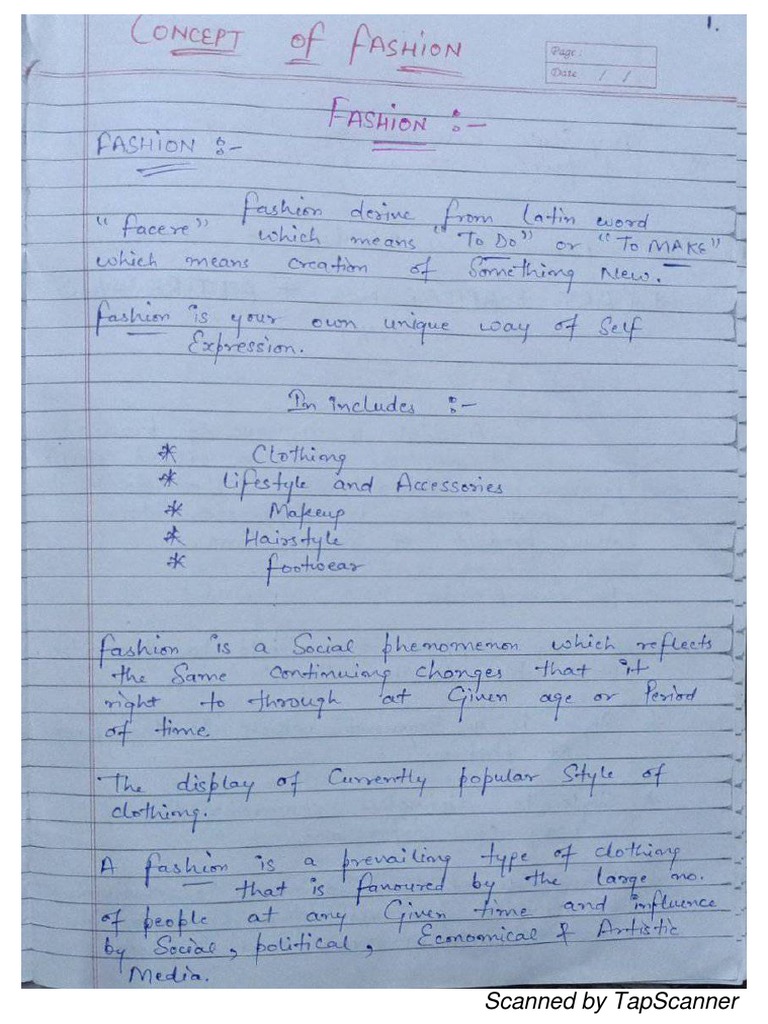 1.
CONCEPT of FASHION
Page:
Date / /
FASHION :-
FASHION :-
fashion derive from Latin word
"facere" which means "To Do" or "To MAKE"
which means creation of Something New.
fashion is your own unique way of Self
Expression.
In includes :-
* Clothing
* Lifestyle and Accessories
* Makeup
* Hairstyle
* footwear
fashion is a Social phenomenon which reflects
the Same continuing changes that it
right to through at Given age or Period
of time.
The display of Currently popular Style of
clothing.
A fashion is a prevailing type of clothing
that is favoured by the large no.
of people at any Given time and influence
by Social, political, Economical & Artistic
Media.
Scanned by TapScanner